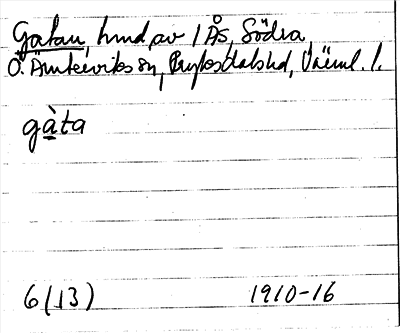 Gatan, hmd. av 1 Ås, Södra,
Ö. Ämterviks sn, Fryksdals hd, Värml. l.
gàta
6(13) 1910-16